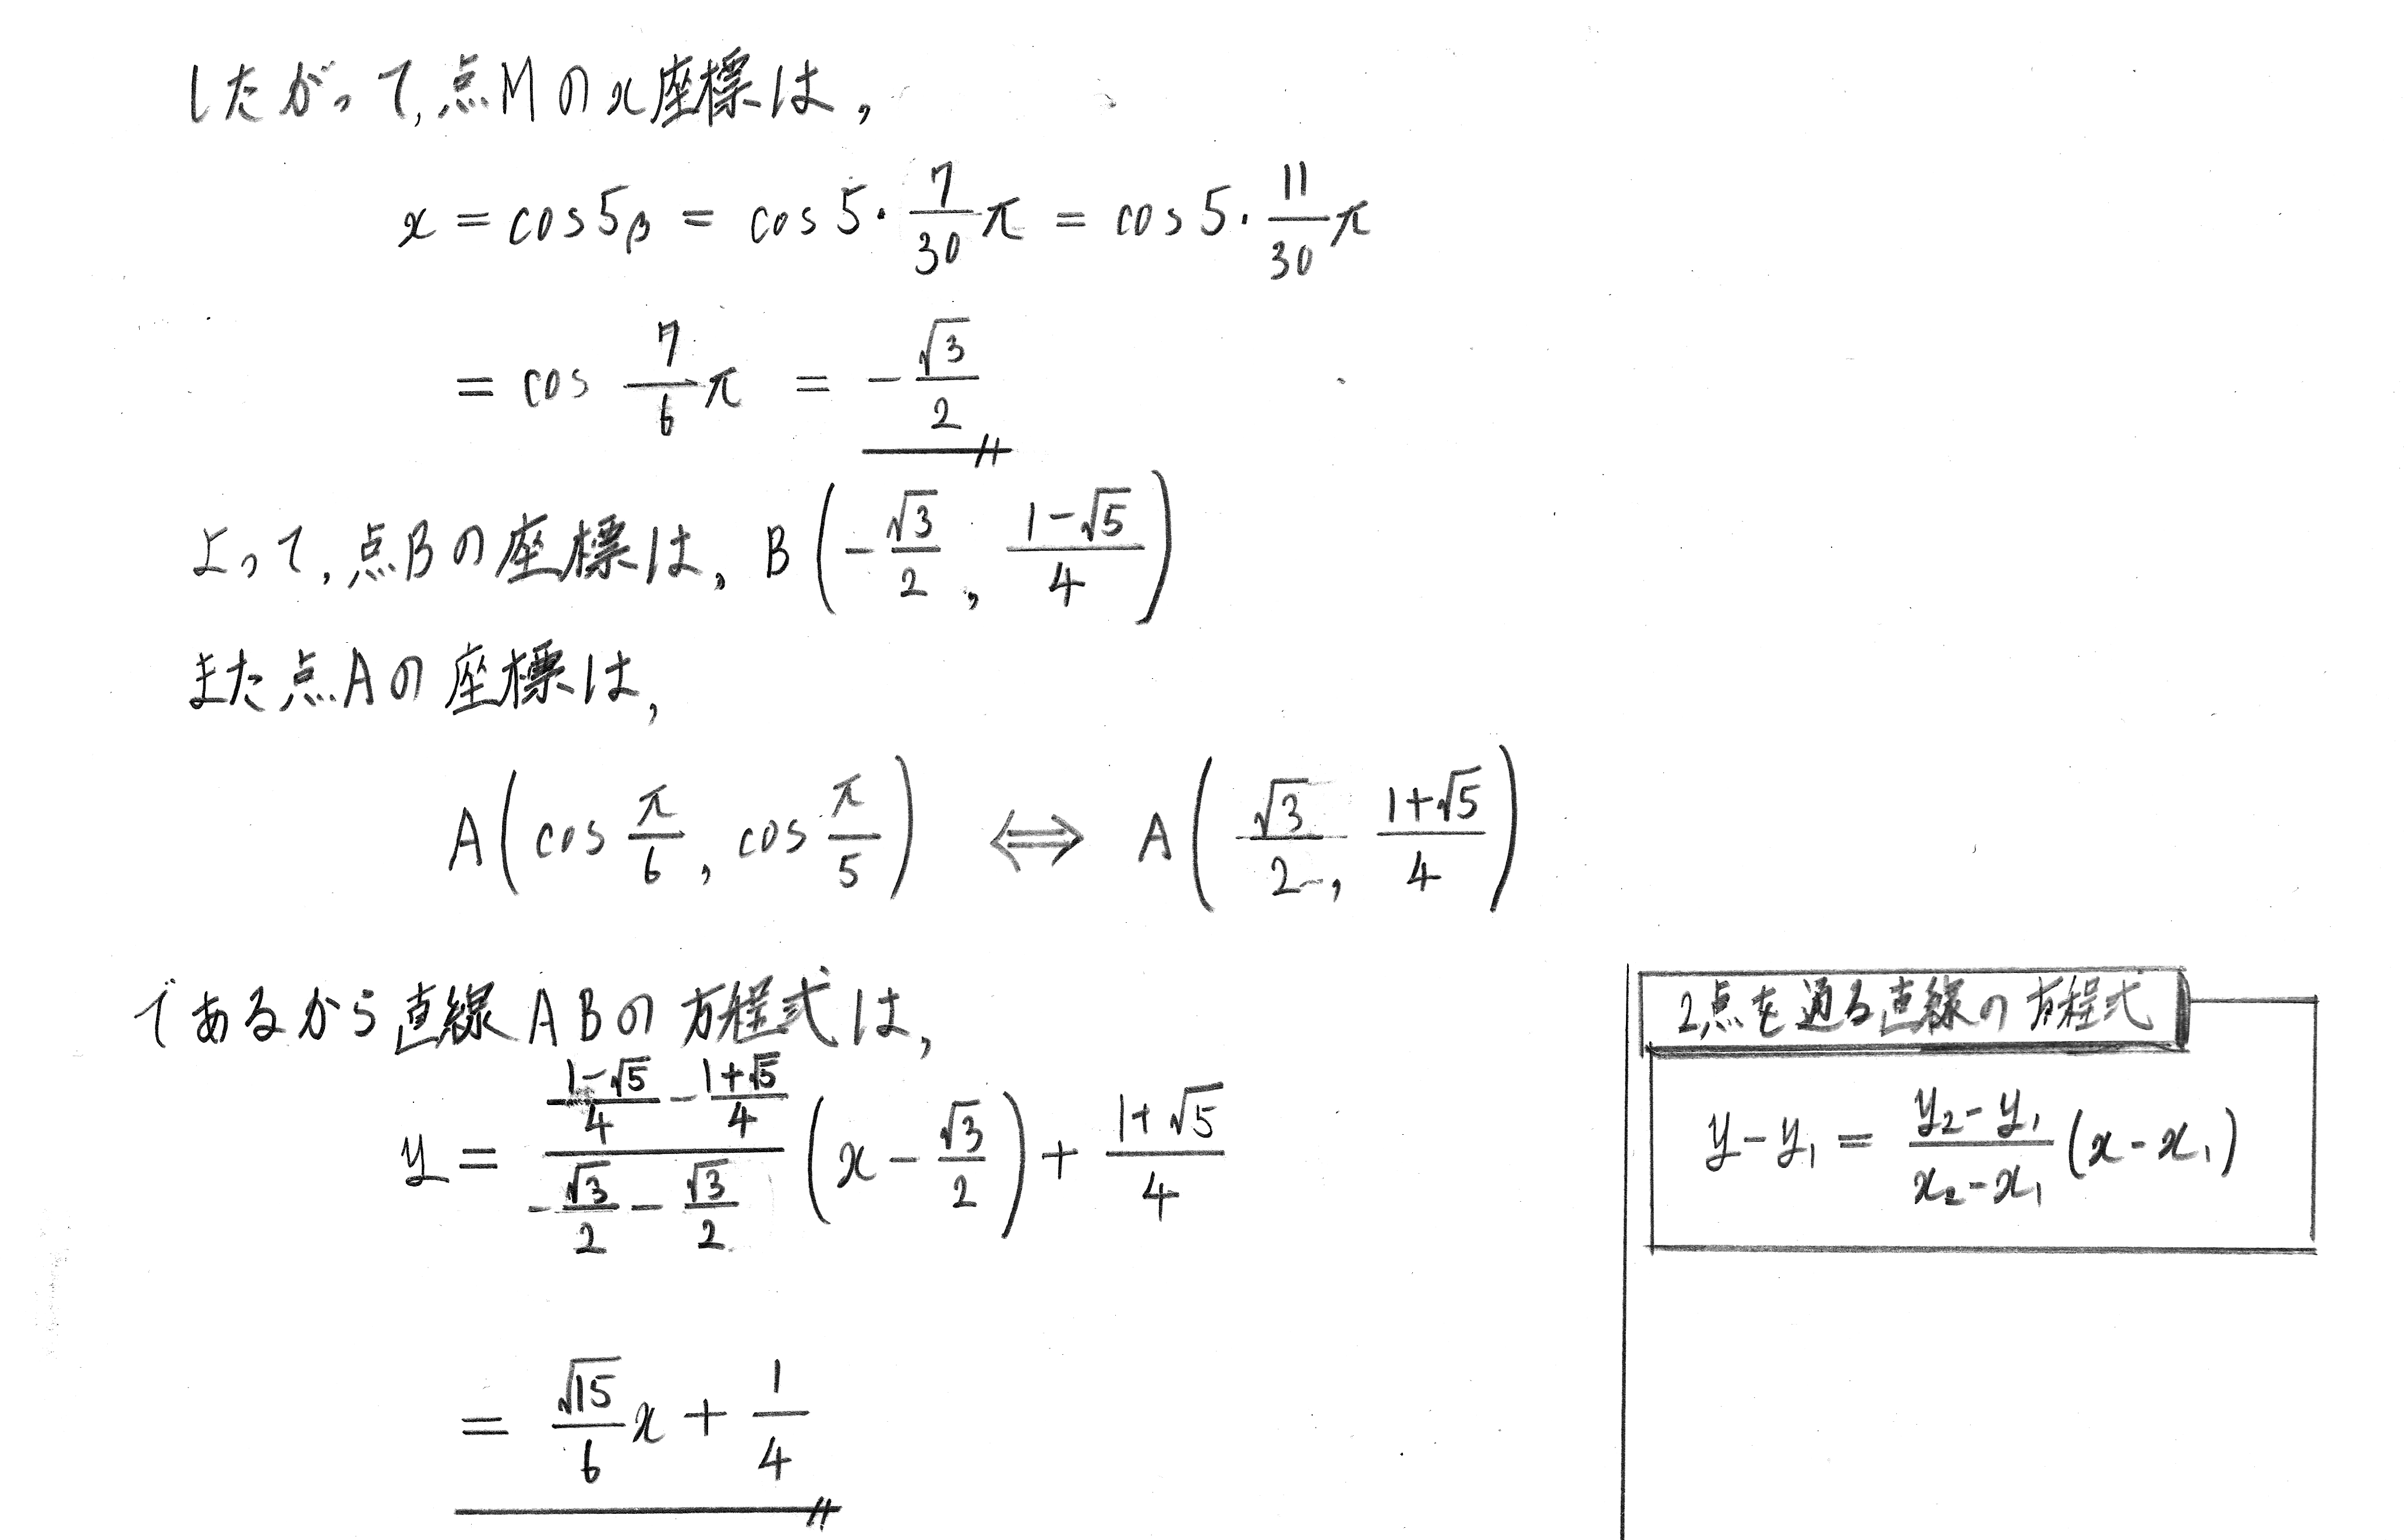 したがって，点Mのx座標は，
x = cos5β = cos5・7/30 π = cos5・11/30 π
= cos 7/6 π = -√3/2
よって，点Bの座標は，B(-√3/2 , (1-√5)/4)
また点Aの座標は，
A(cos π/6 , cos π/5) ⇔ A(√3/2 , (1+√5)/4)
であるから直線ABの方程式は，
y = ((1-√5)/4 - (1+√5)/4)/(-√3/2 - √3/2) (x - √3/2) + (1+√5)/4
= √15/6 x + 1/4
2点を通る直線の方程式
y - y₁ = (y₂ - y₁)/(x₂ - x₁) (x - x₁)